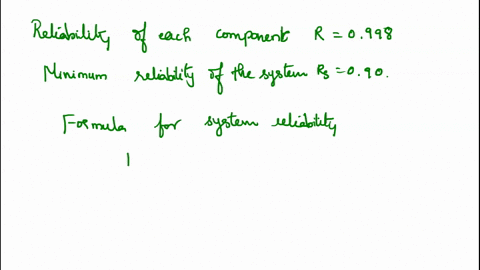 Reliability of each component R = 0.998
Minimum reliability of the system Rs = 0.90.
Formula for system reliability